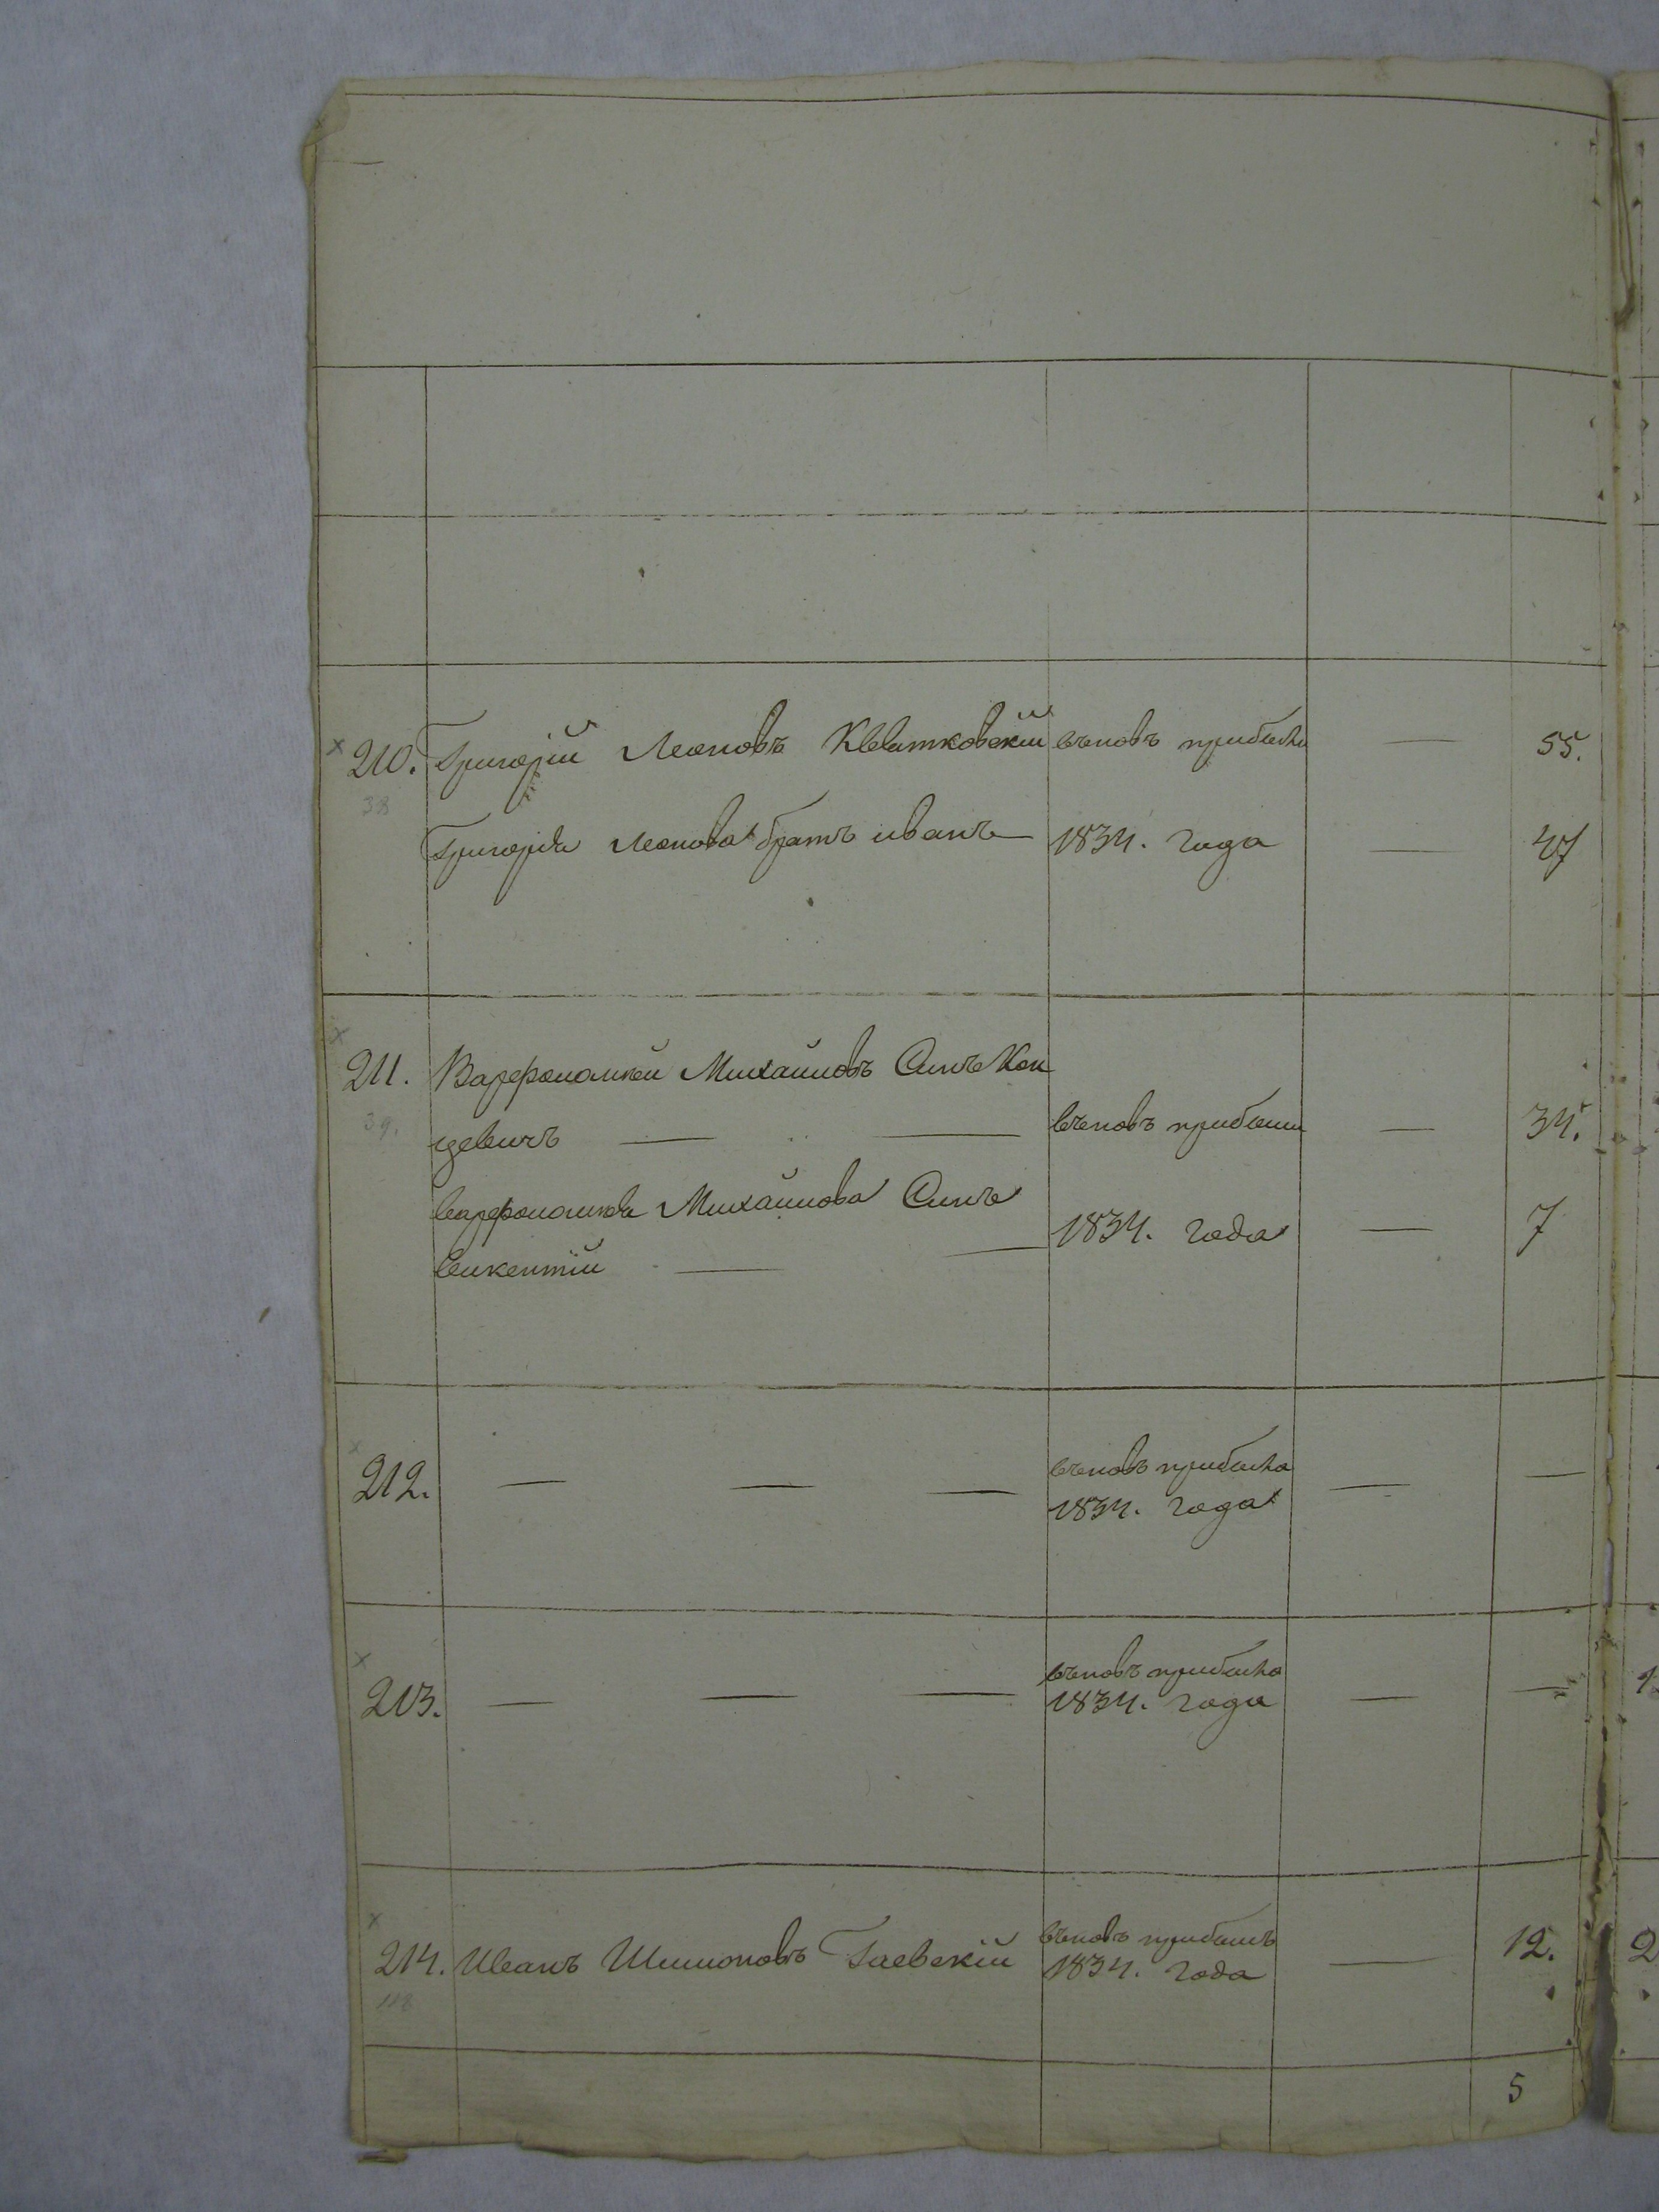 210. Григорій Леоновъ Кватковскій въновъ прибыли — 55.
38
Григорія Леонова братъ иванъ — 1834. года — 47
211. Варфоломей Михайловъ Сынъ Кон
39.
цевичъ — — въновъ прибыли — 34.
варфоломея Михайлова Сынъ
1834. года — 7
викентій — —
212. — — — въновъ прибыла — —
1834. года
213. — — — въновъ прибыла
1834. года — —
214. Иванъ Шимоновъ Гаевскій въновъ прибылъ
1834. года — 12.
118
5